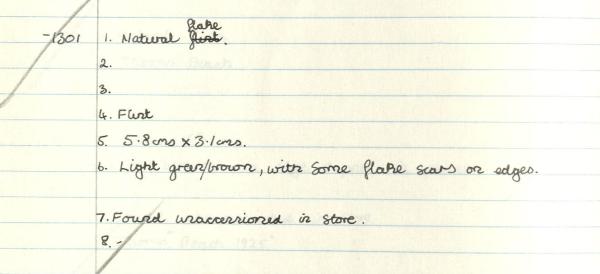 flake
-1301 1. Natural flint.
2.
3.
4. Flint
5. 5.8cms x 3.1cms.
6. Light green/brown, with some flake scars on edges.
7. Found unaccessioned in store.
8. -